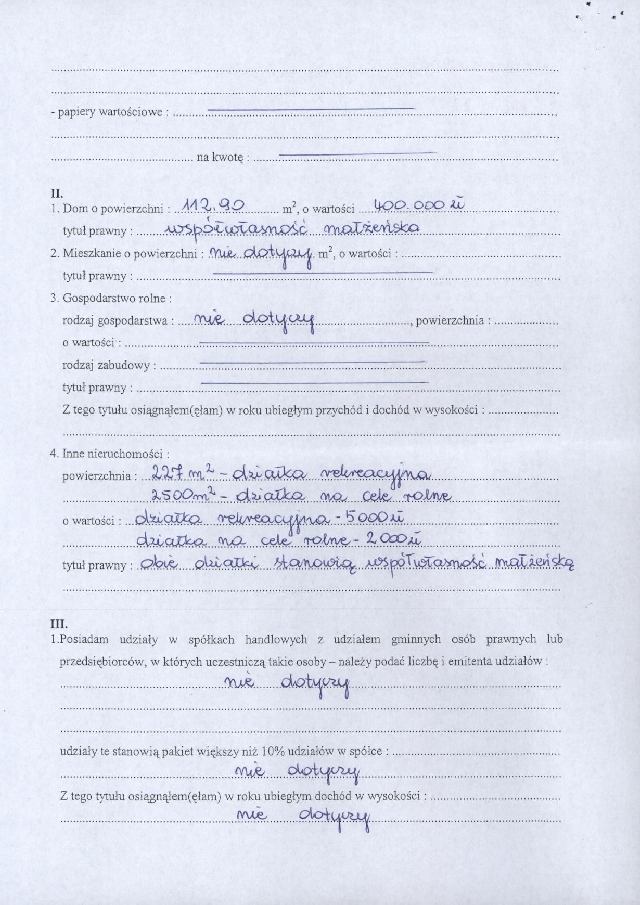 - papiery wartościowe :
na kwotę :
II.
1. Dom o powierzchni : 112,90 m², o wartości 400.000 zł
tytuł prawny : współwłasność małżeńska
2. Mieszkanie o powierzchni : nie dotyczy m², o wartości :
tytuł prawny :
3. Gospodarstwo rolne :
rodzaj gospodarstwa : nie dotyczy, powierzchnia :
o wartości :
rodzaj zabudowy :
tytuł prawny :
Z tego tytułu osiągnąłem(ęłam) w roku ubiegłym przychód i dochód w wysokości :
4. Inne nieruchomości :
powierzchnia : 227 m² - działka rekreacyjna
2500m² - działka na cele rolne
o wartości : działka rekreacyjna - 5000 zł
działka na cele rolne - 2000 zł
tytuł prawny : obie działki stanowią współwłasność małżeńską
III.
1.Posiadam udziały w spółkach handlowych z udziałem gminnych osób prawnych lub
przedsiębiorców, w których uczestniczą takie osoby – należy podać liczbę i emitenta udziałów :
nie dotyczy
udziały te stanowią pakiet większy niż 10% udziałów w spółce :
nie dotyczy
Z tego tytułu osiągnąłem(ęłam) w roku ubiegłym dochód w wysokości :
nie dotyczy